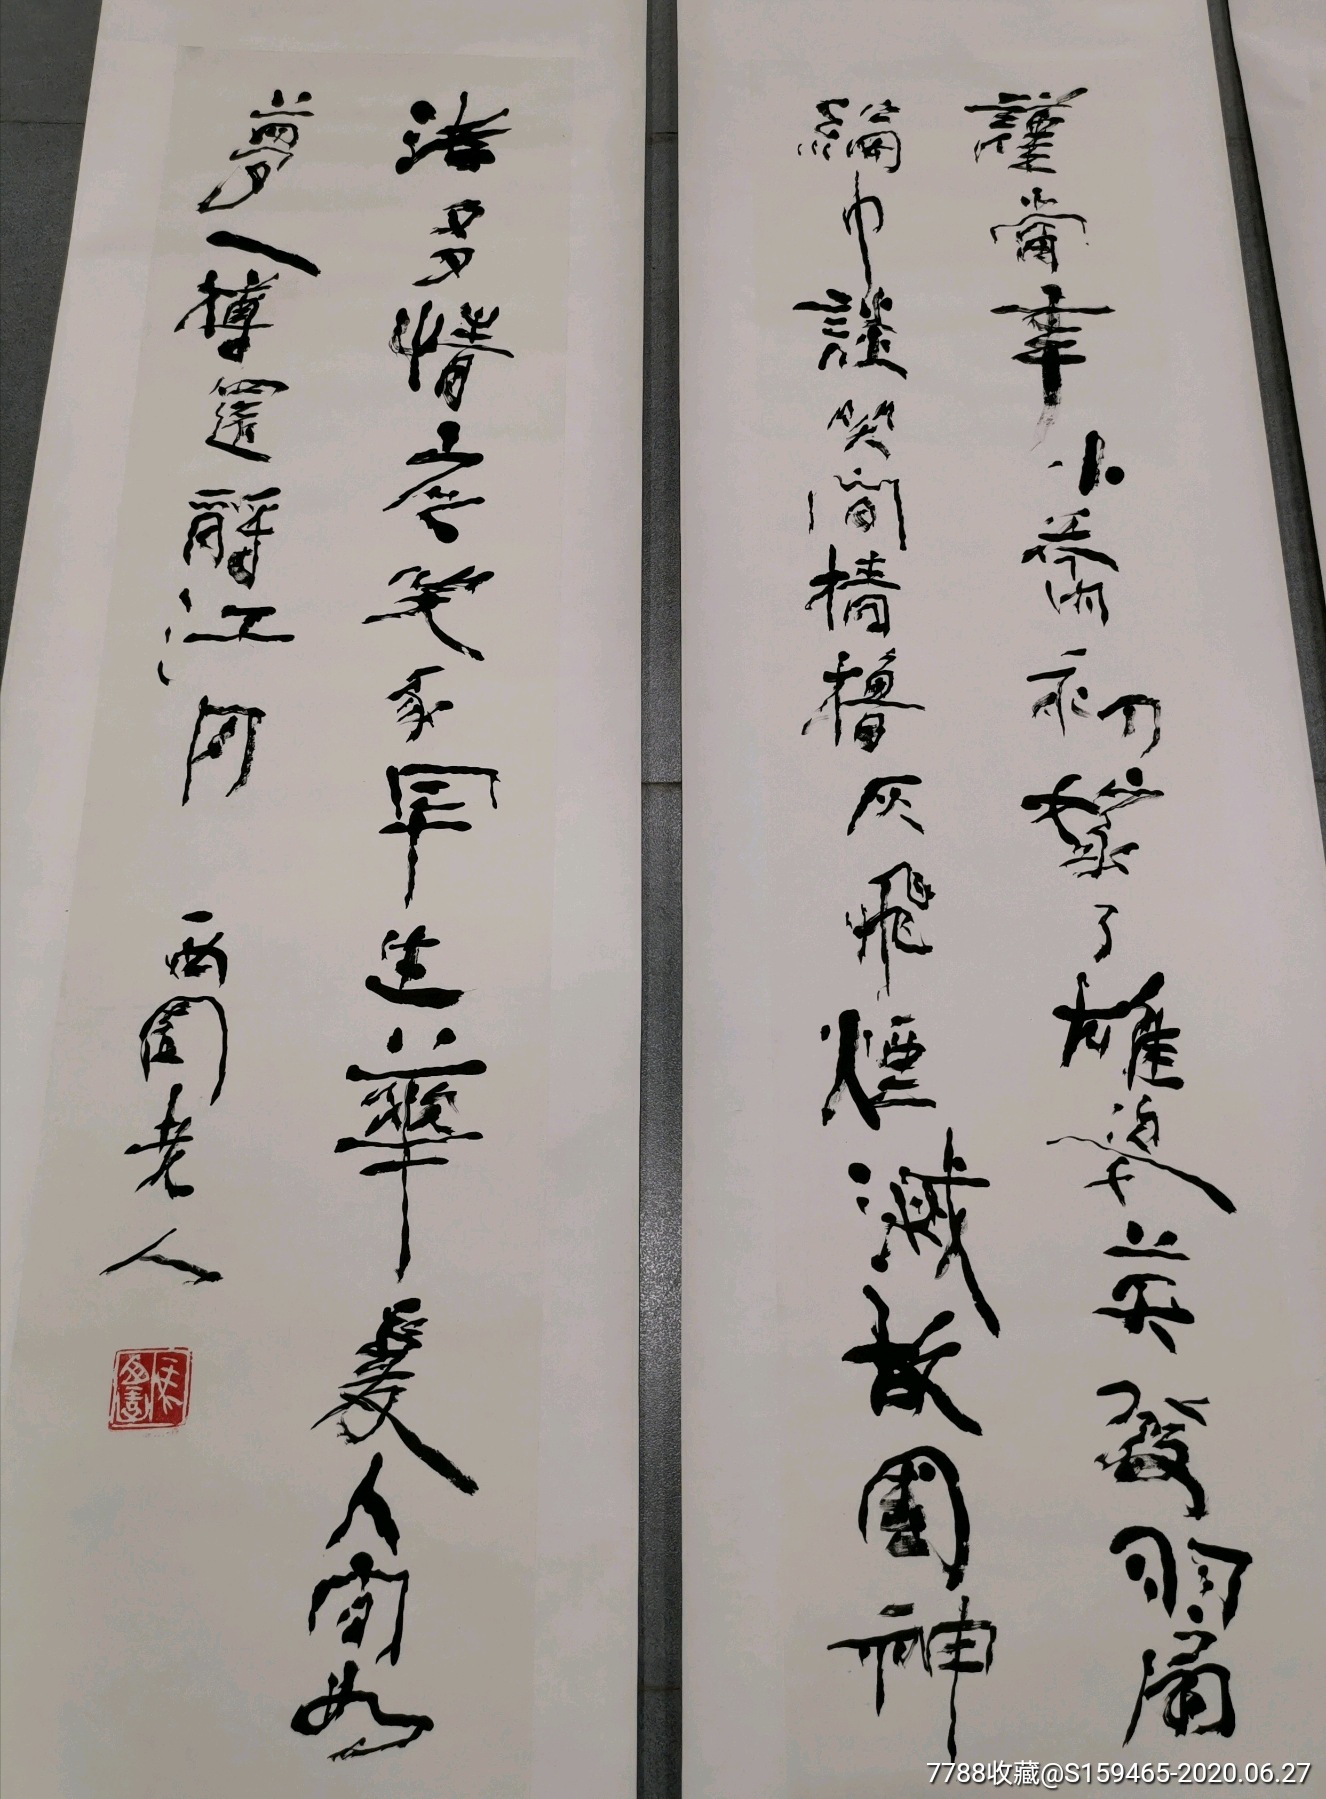 謹當年小喬初嫁了雄姿英發羽扇
綸巾談笑間檣櫓灰飛煙滅故國神
游多情應笑我早生華髮人間如
夢一樽還酹江月
西園老人
7788收藏@S159465-2020.06.27